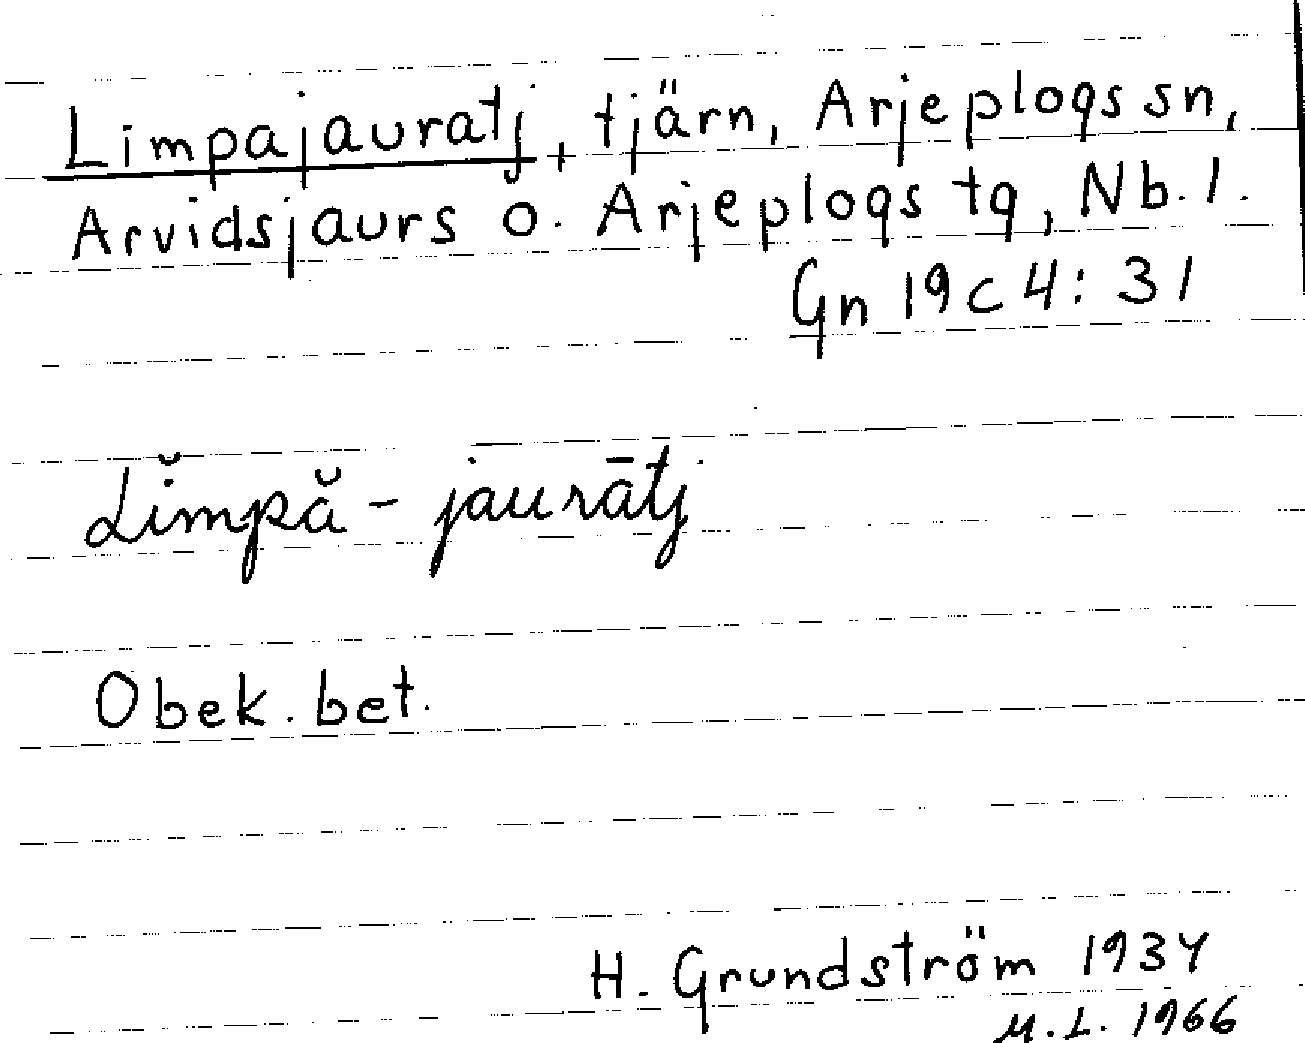 Limpajauratj, tjärn, Arjeplogs sn,
Arvidsjaurs o. Arjeplogs tg, Nb. l.
Gn 19c 4: 31
Lĭmpă - jaurātj
Obek. bet.
H. Grundström 1934
M.L. 1966